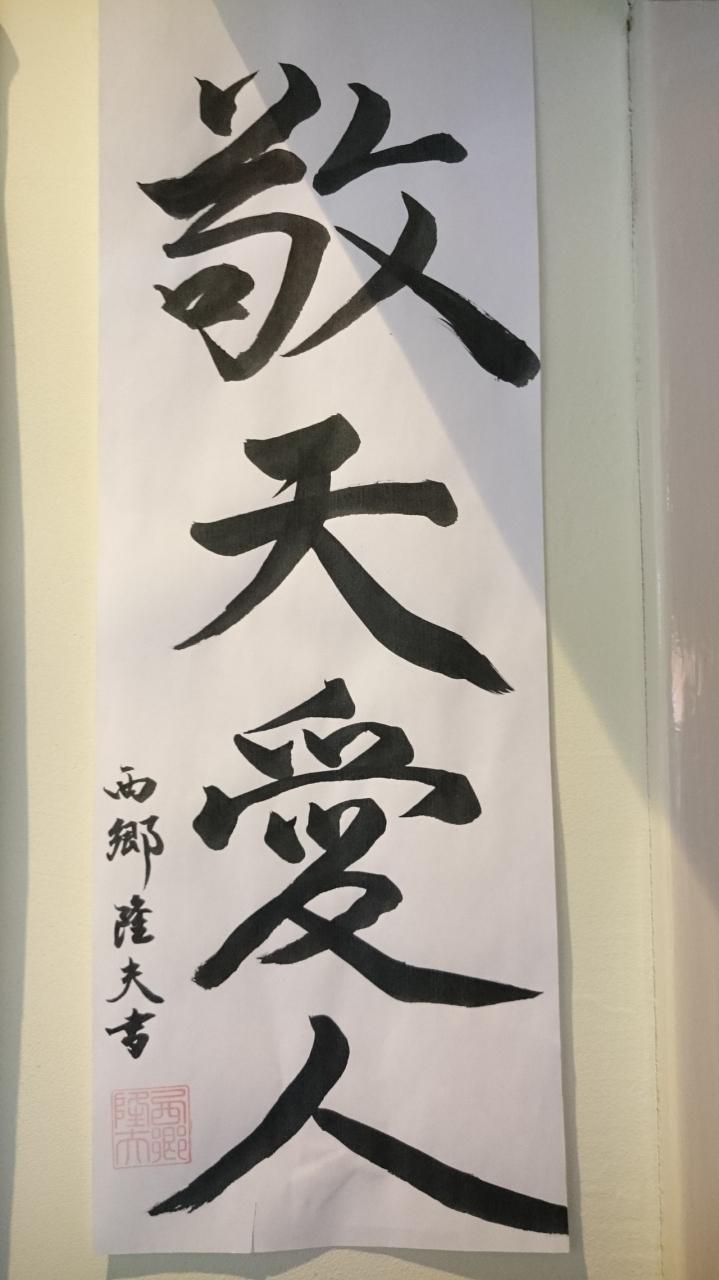 敬天愛人
西郷隆夫書
西郷隆夫